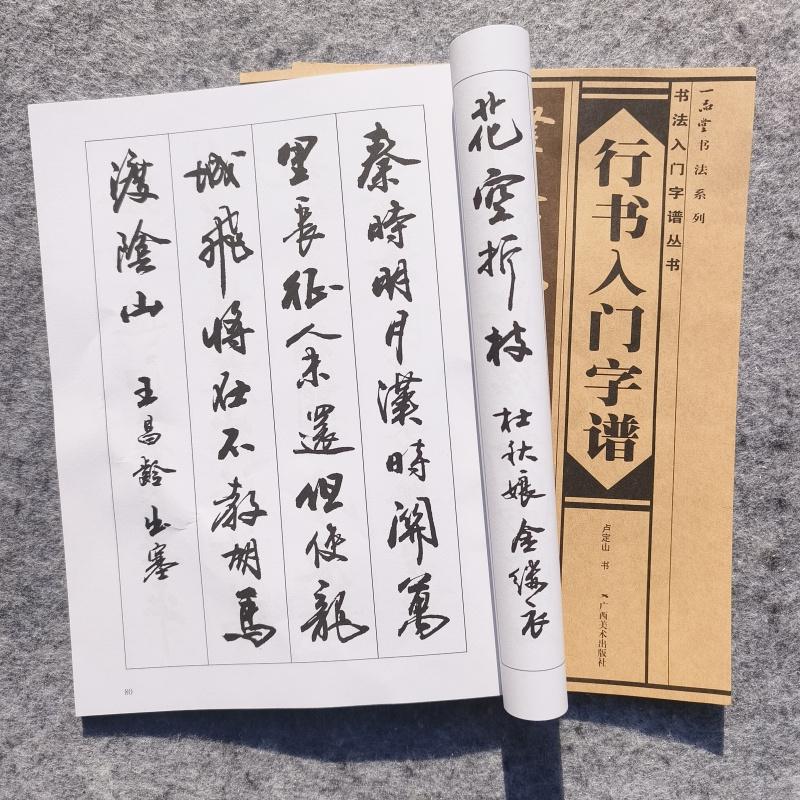 一品堂书法系列
书法入门字谱丛书
行书入门字谱
卢定山 书
广西美术出版社
花空折枝 杜秋娘金縷衣
秦時明月漢時關萬
里長征人未還但使龍
城飛將在不教胡馬
渡陰山 王昌齡出塞
80